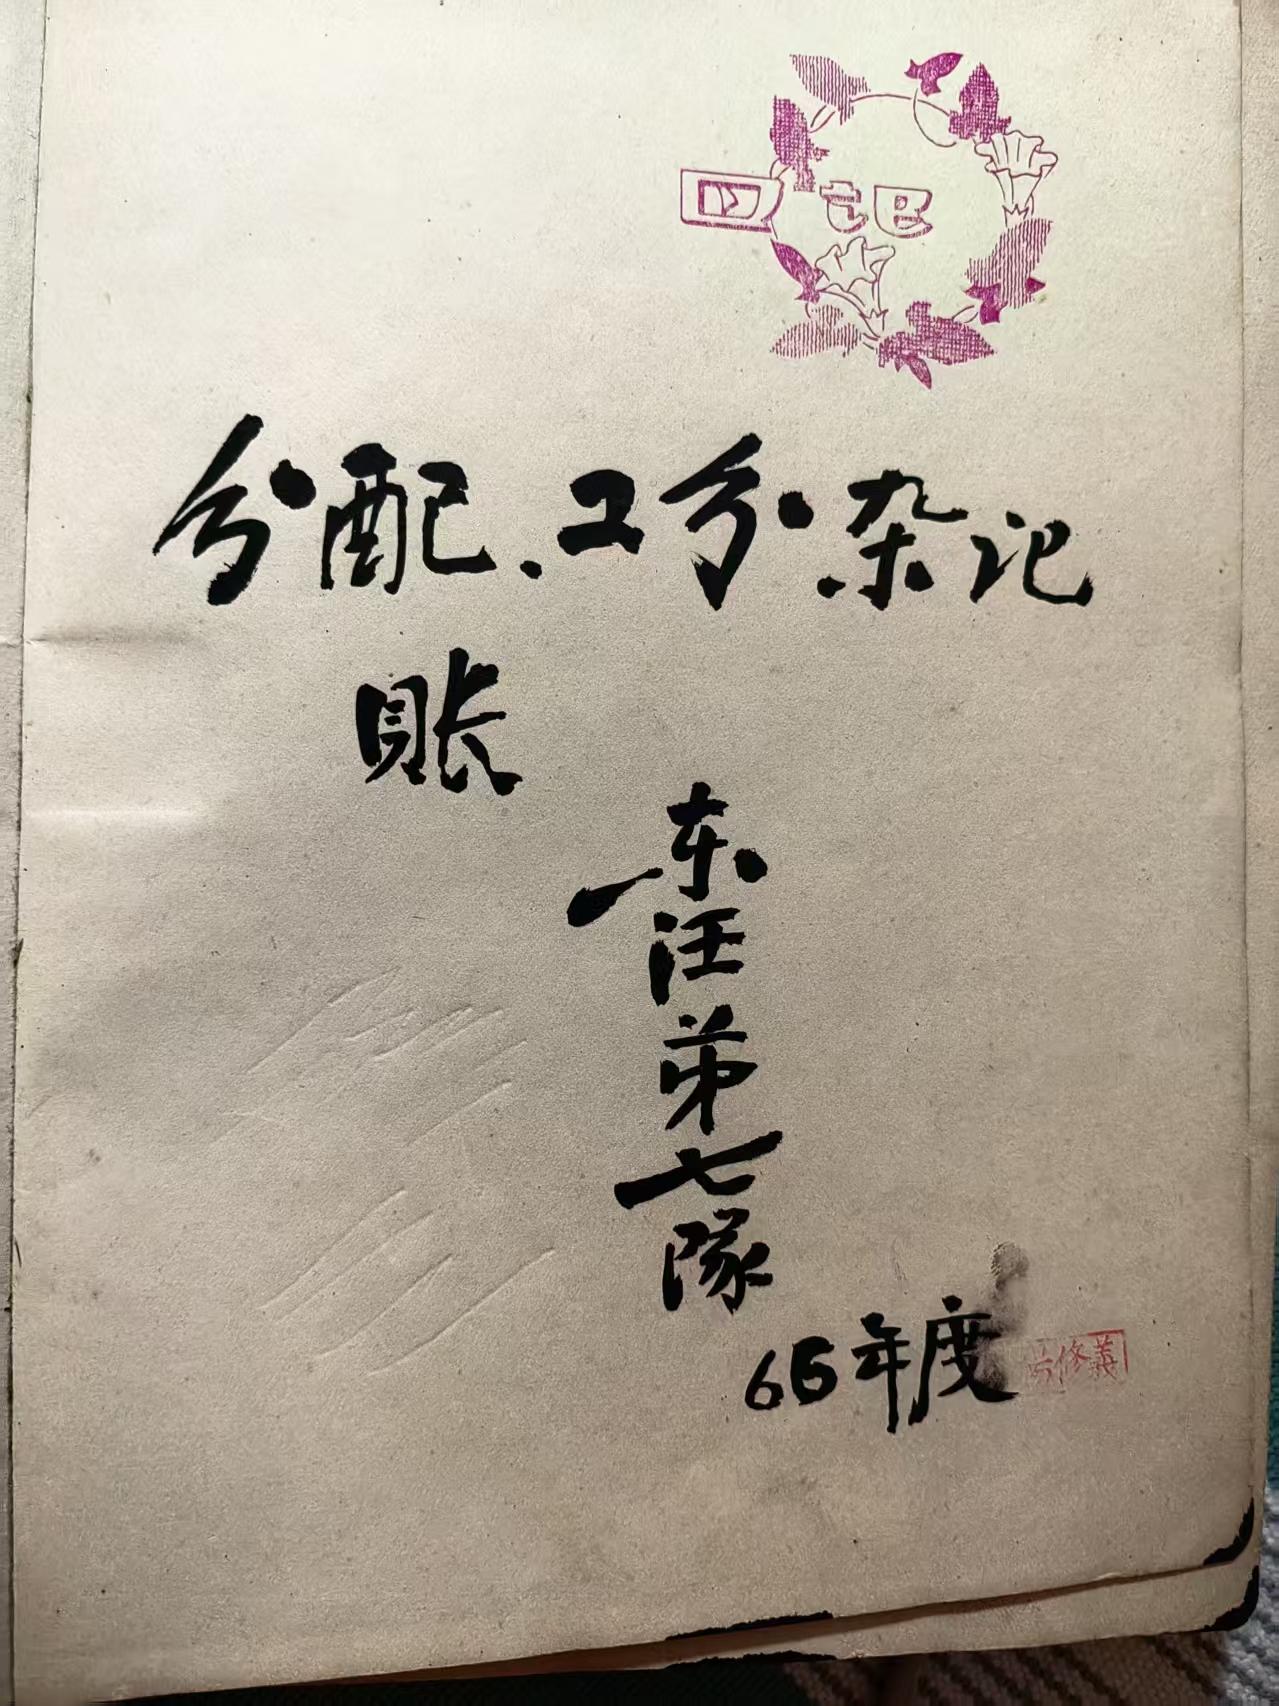 日记
分配、工分、杂记
账
东汪第七隊
66年度
修義